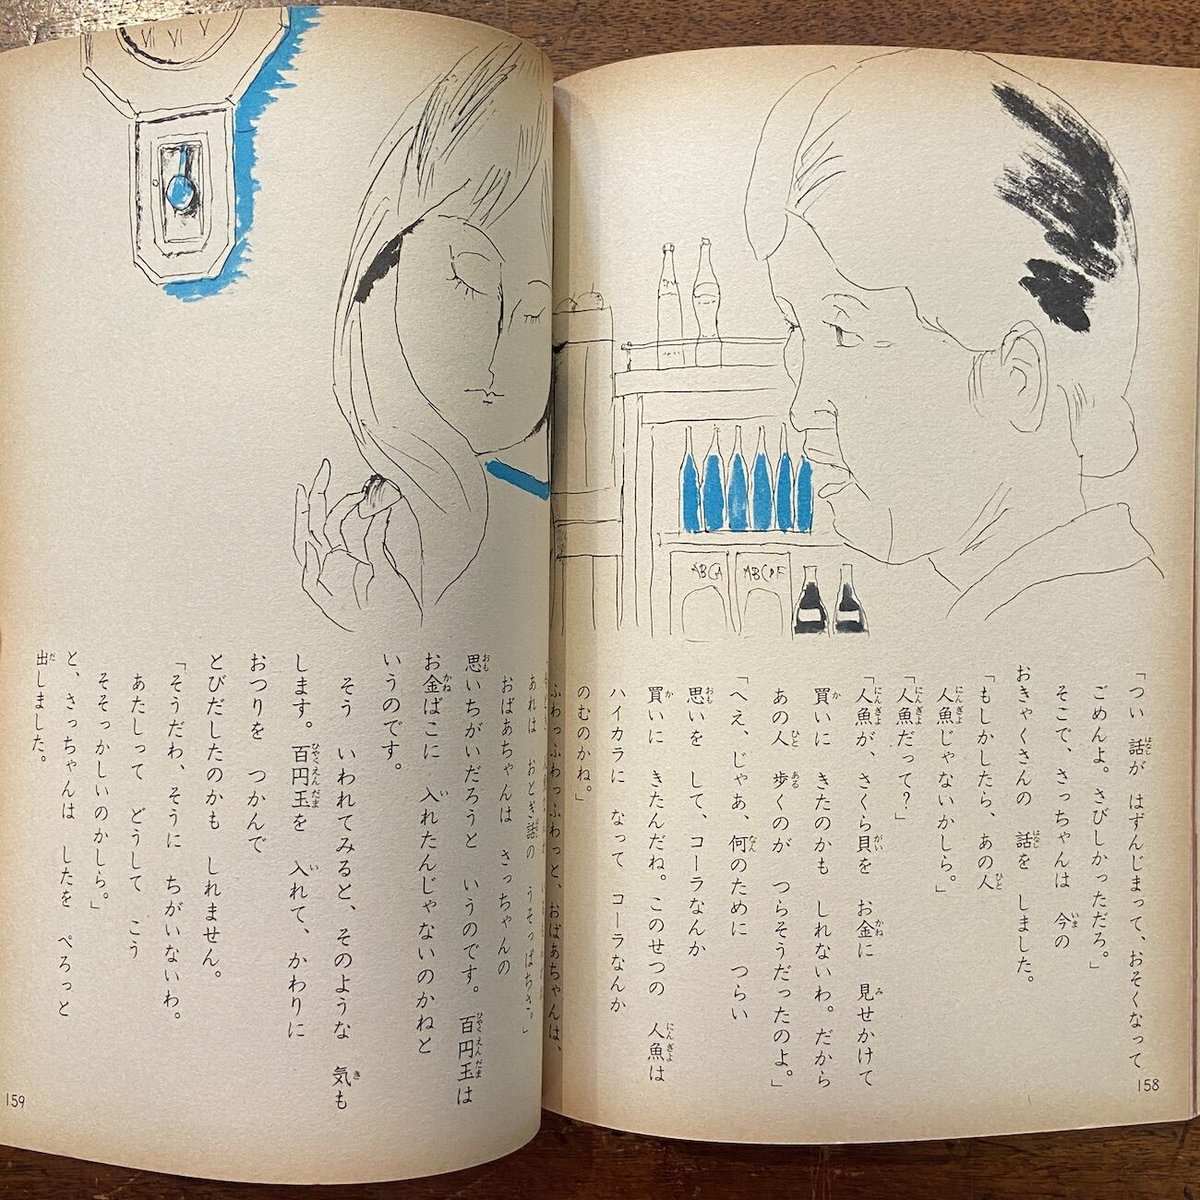 「つい 話が はずんじまって、おそくなって
ごめんよ。さびしかっただろ。」
そこで、さっちゃんは 今の
おきゃくさんの 話を しました。
「もしかしたら、あの人
人魚じゃないかしら。」
「人魚だって?」
「人魚が、さくら貝を お金に 見せかけて
買いに きたのかも しれないわ。だから
あの人 歩くのが つらそうだったのよ。」
「へえ、じゃあ、何のために つらい
思いを して、コーラなんか
買いに きたんだね。このせつの 人魚は
ハイカラに なって コーラなんか
のむのかね。」
ふわっふわっふわっと、おばあちゃんは、
158
あれは おとぎ話の うそっぱちさ。」
おばあちゃんは さっちゃんの
思いちがいだろうと いうのです。百円玉は
お金ばこに 入れたんじゃないのかねと
いうのです。
そう いわれてみると、そのような 気も
します。百円玉を 入れて、かわりに
おつりを つかんで
とびだしたのかも しれません。
「そうだわ、そうに ちがいないわ。
あたしって どうして こう
そそっかしいのかしら。」
と、さっちゃんは したを ぺろっと
出しました。
159